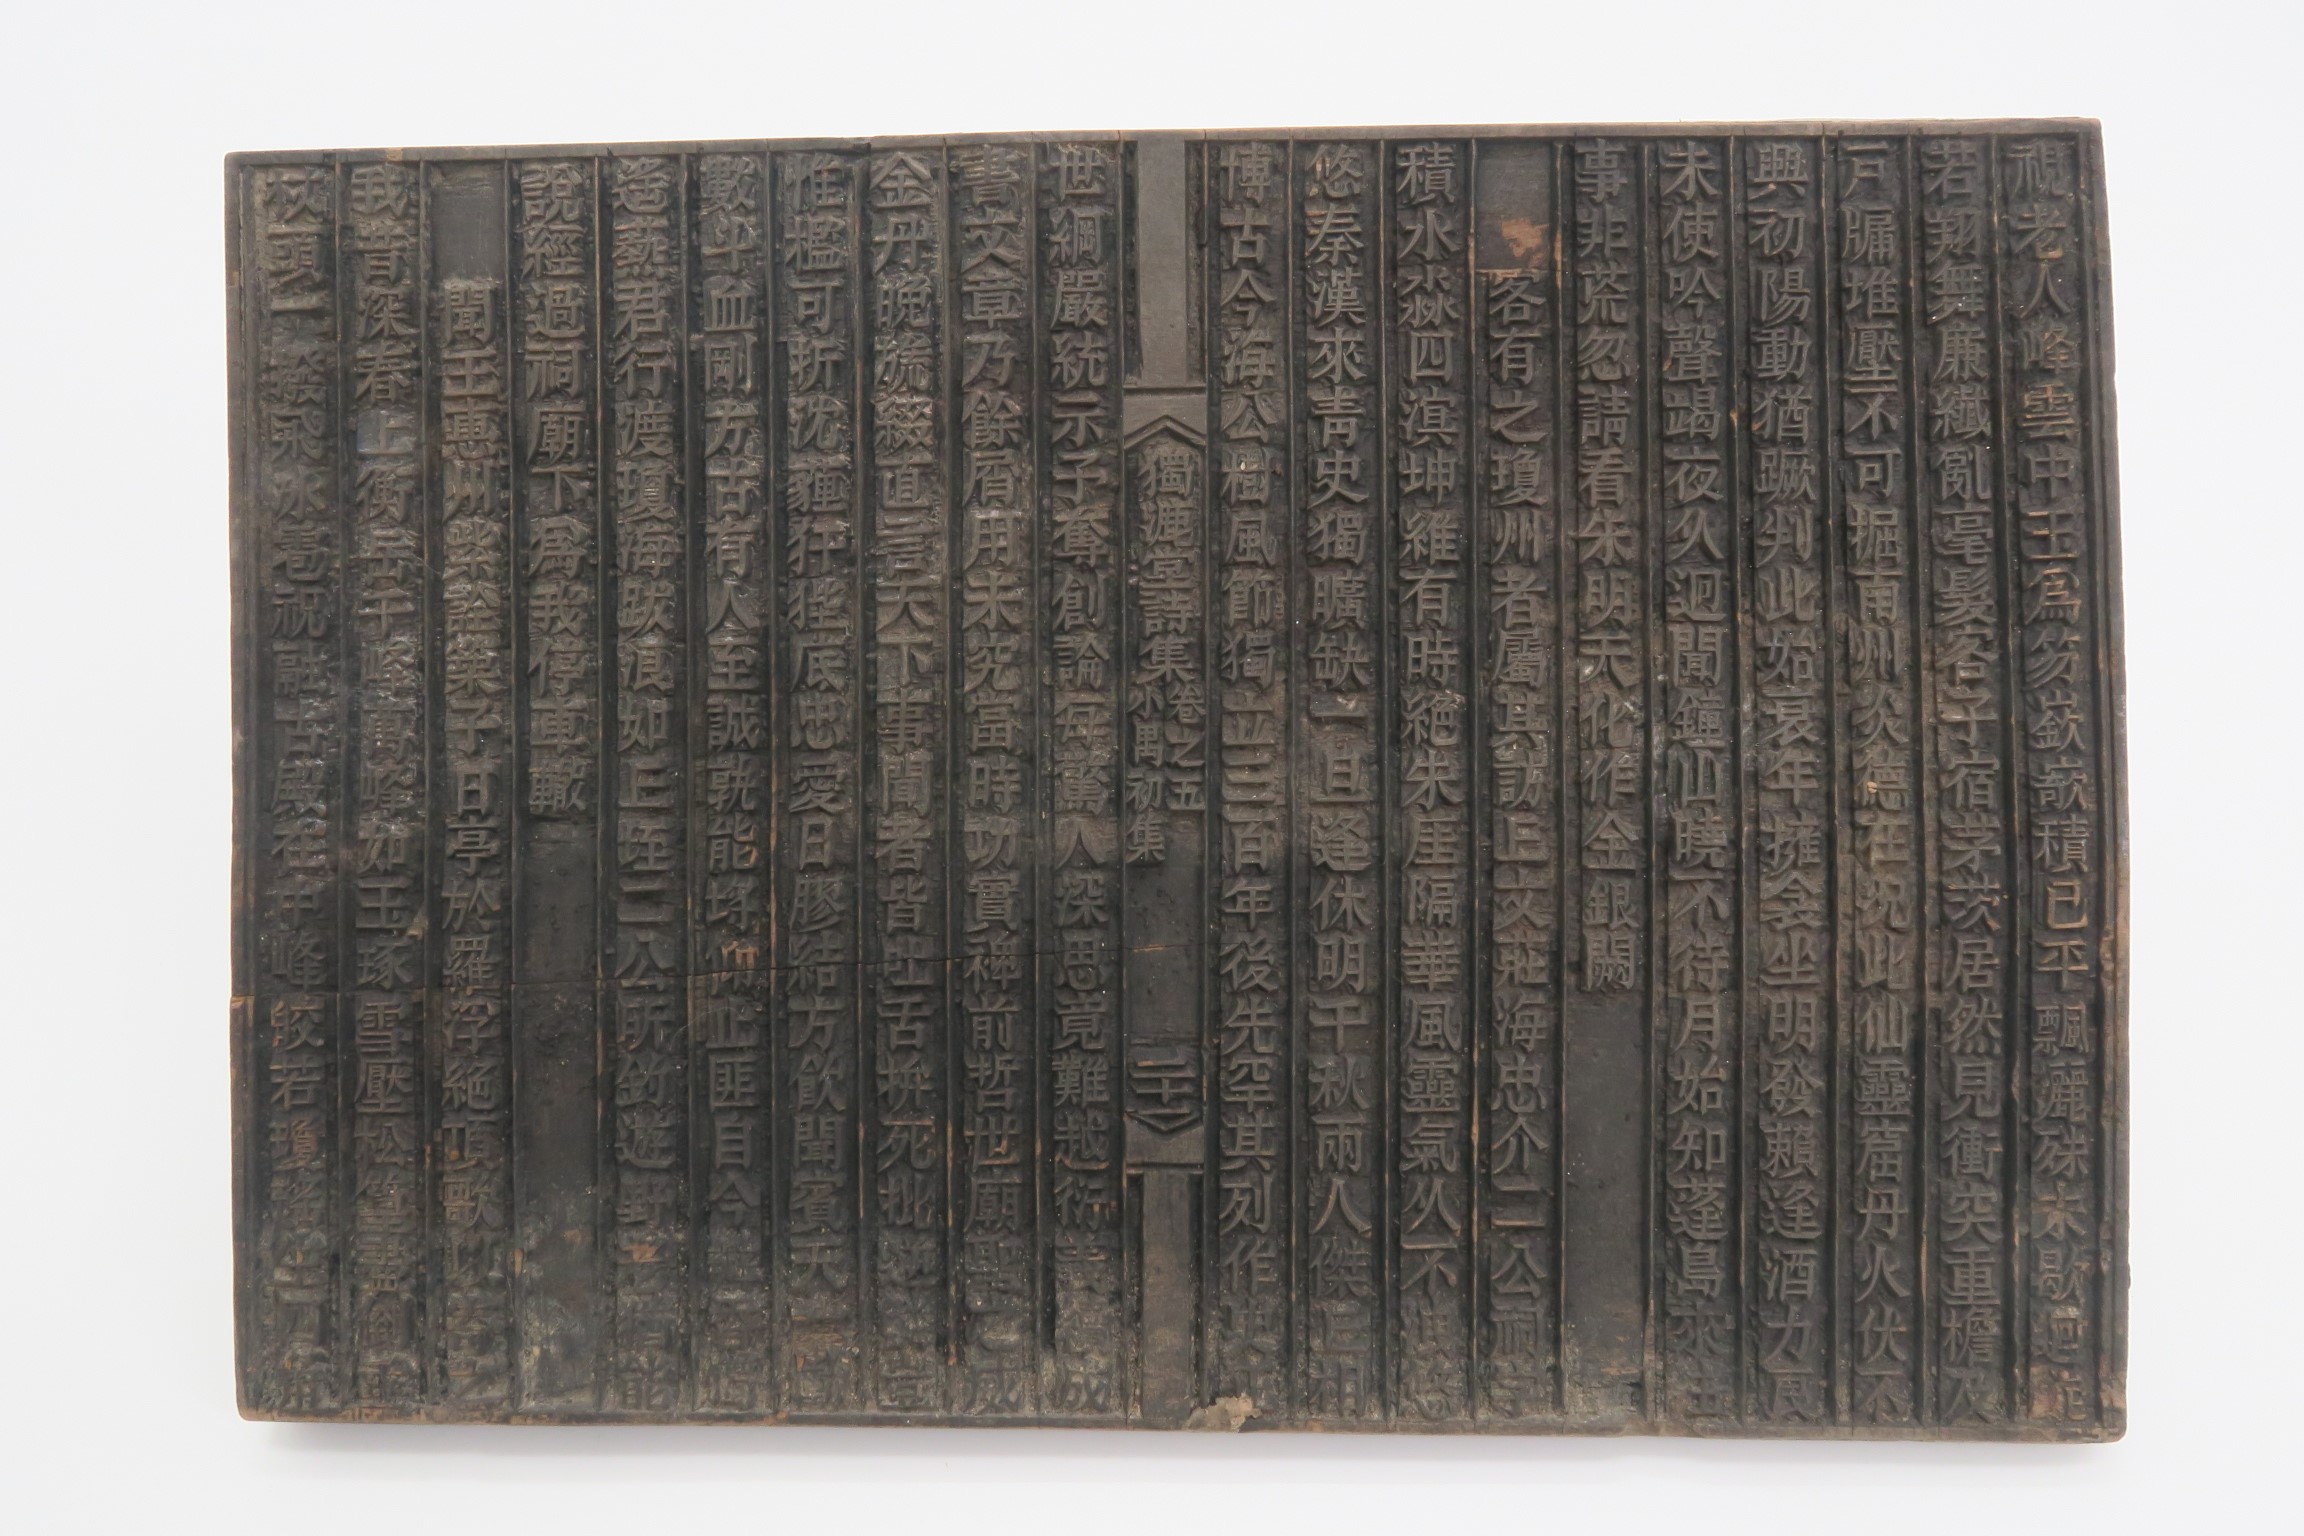 視老人峰雲中玉爲笏嶔嶔積已平飄灑殊未歇迴
若翔舞廉纖亂毫髮客子宿茅茨居然見衝突重檐及
戶牖堆壓不可掘南州炎德在況此仙靈窟丹火伏不
興初陽動猶蹶判此始哀年擁衾坐明發賴逢酒力
未使吟聲竭夜久迴聞鐘山曉不待月始知蓬島
事非荒忽請看朱明天化作金銀闕
客有之瓊州者屬其訪丘文莊海忠介二公祠
積水淼四溟坤維有時絕朱崖隔華風靈氣从不
悠秦漢來青史獨曠缺一旦逢休明千秋兩人傑
博古今海公樹風節獨立三百年後先罕其列作
獨漉堂詩集卷之五
小禺初集
二十一
世綱嚴統示予奪創論每驚人深思竟難越衍義
書文章乃餘屑用未究當時功實裨前哲世廟
金丹晚旒綴直言天下事聞者皆吐舌拚死批逆
惟檻可折沈薶狂狴底忠愛日膠結方飲聞賓天
數斗血剛方古有人至誠孰能埒仰止匪自今
遙爇君行渡瓊海跋浪如丘垤二公所釣遊野
說經過祠廟下爲我停車轍
聞王惠州柴詮築子日亭於羅浮絕頂歌以
我昔深春上衡岳千峰萬峰如玉琢雪壓松篁
杖頭一撥飛冰雹祝融古殿在中峰皎若瓊瑤